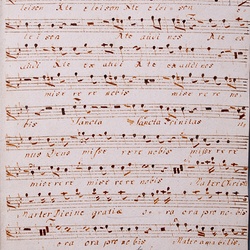 leison Xte eleison Xte eleison
leison Xte audi nos Xte
audi Xte exaudi Xte exaudi nos
miserere nobis miserere no
bis Sancta Sancta Trinitas
unus Deus miserere miserere no
miserere miserere nobis Mater Christi
Mater Divine gratiæ ora ora pro nobis
ora ora pro nobis Mater amabilis